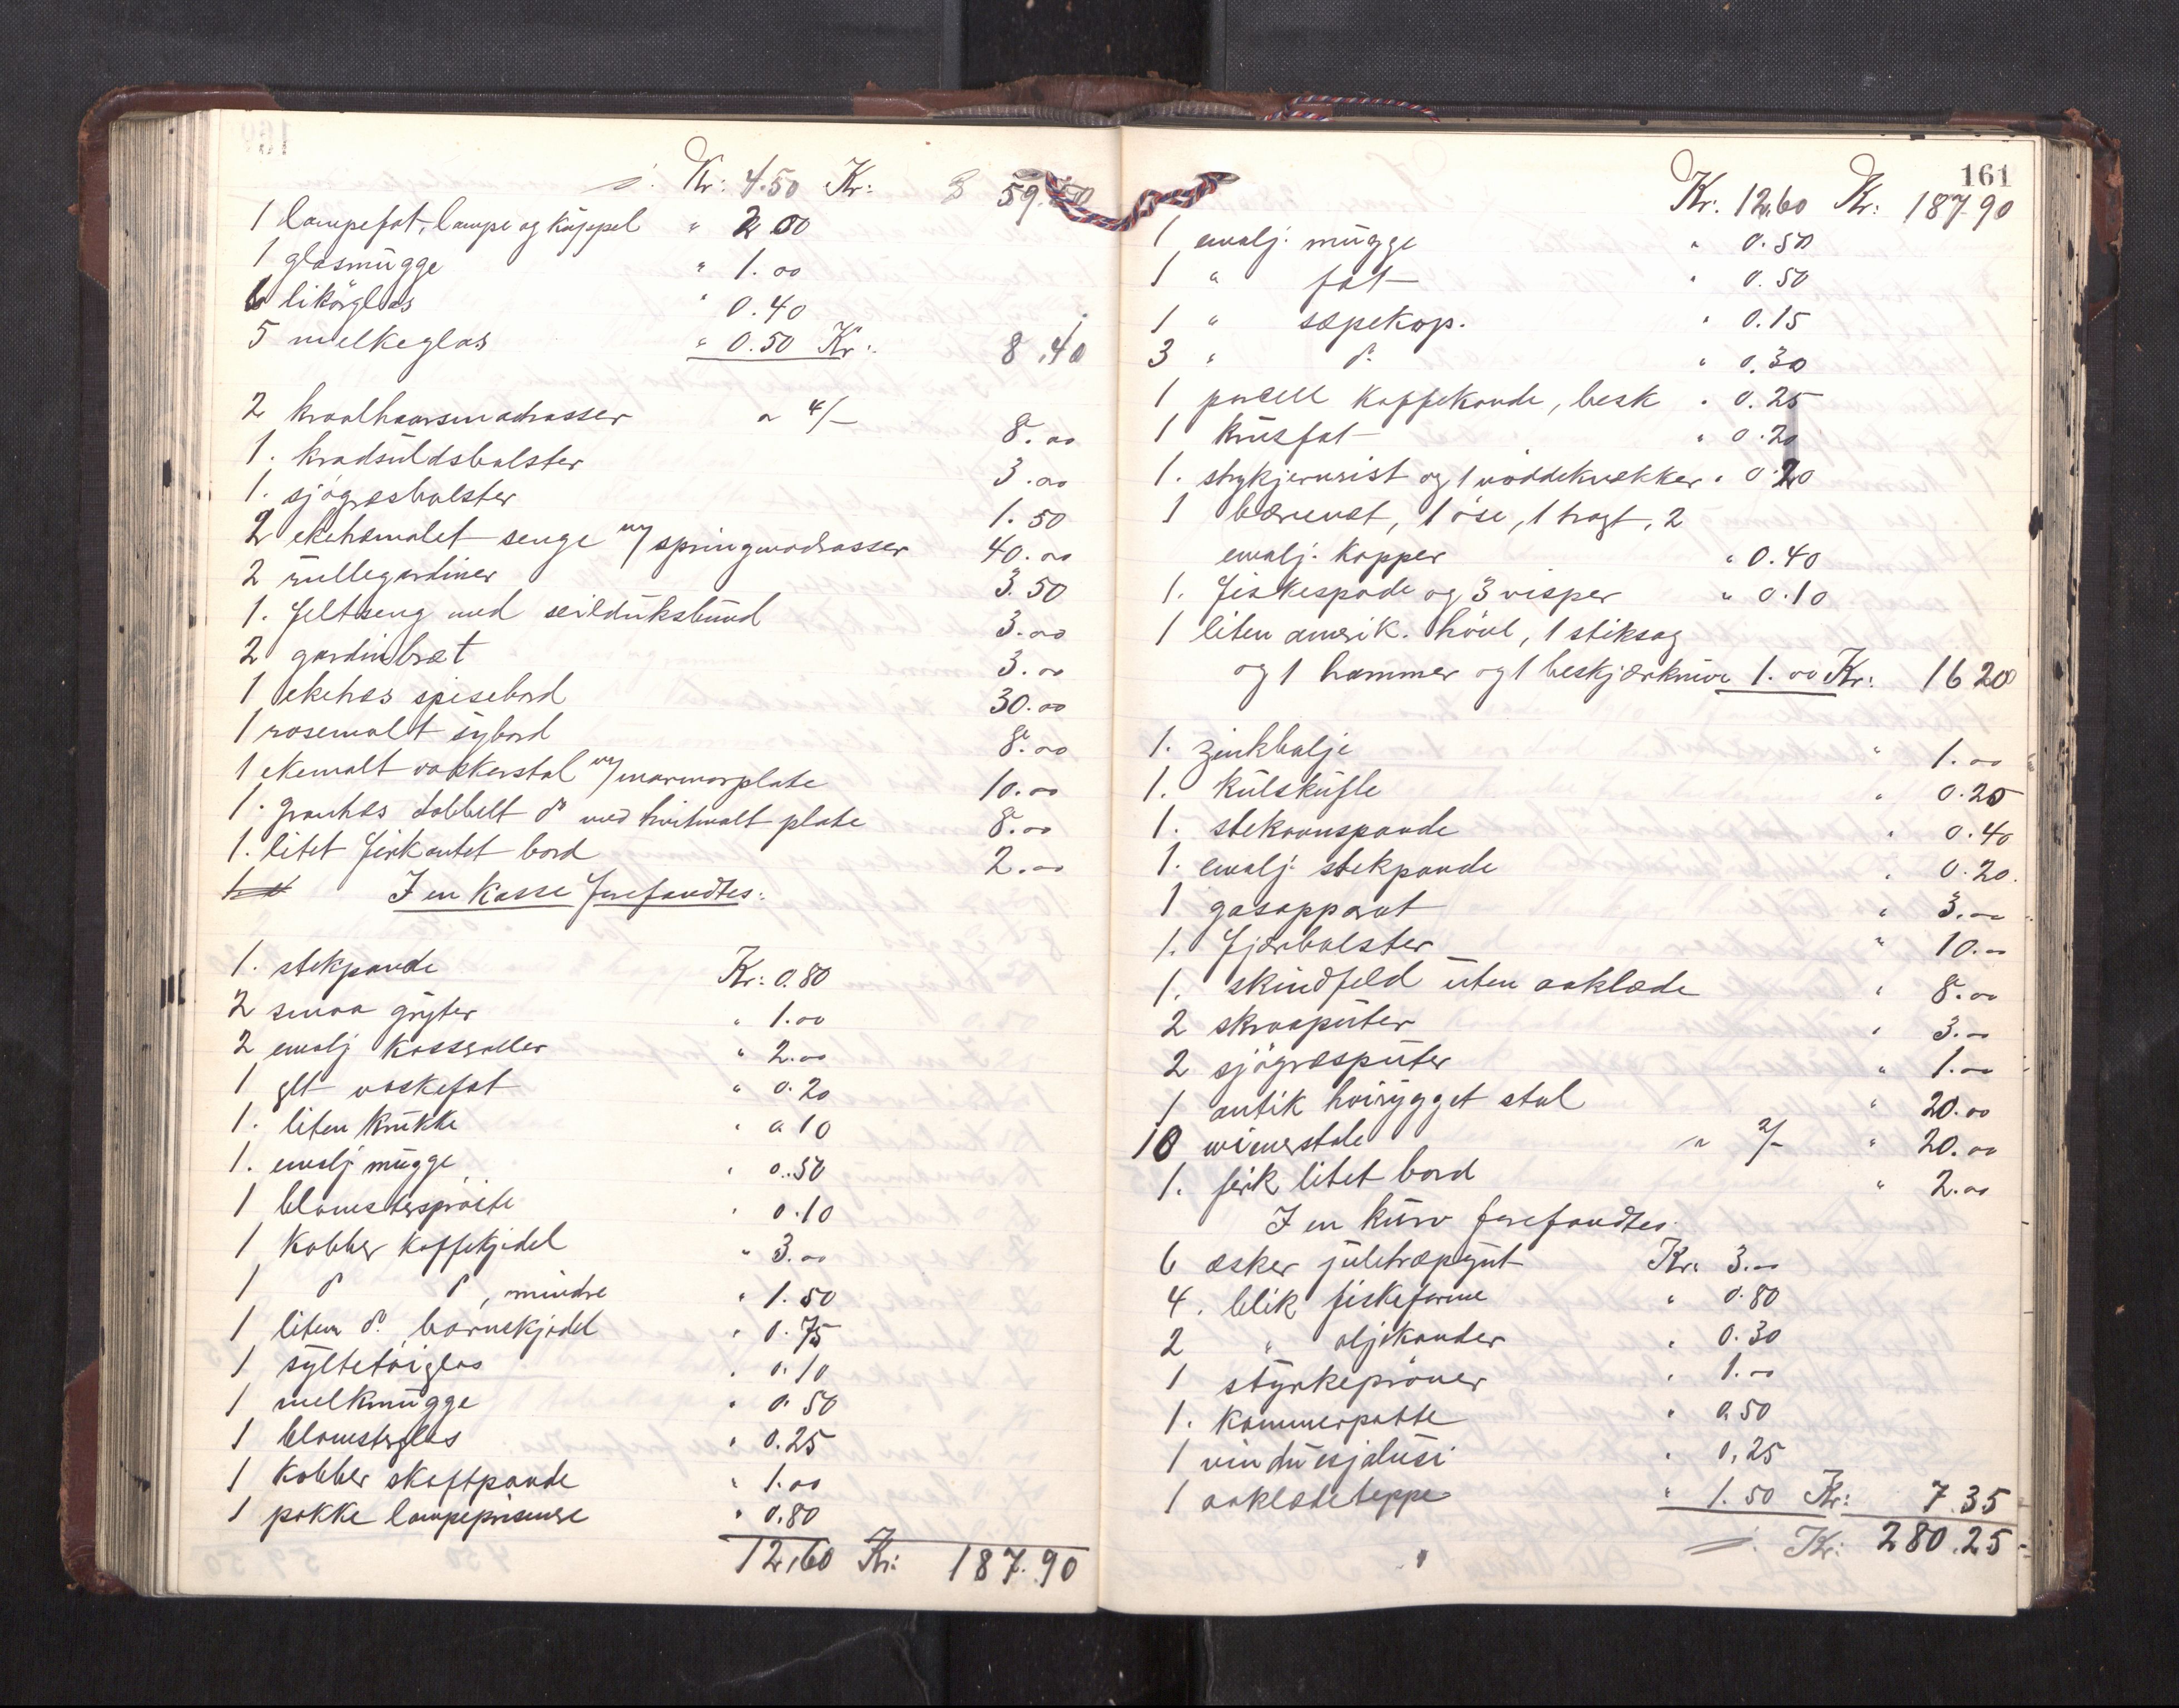 Kr: 4.50 Kr: 59.50
1 lampefat, lampe og kuppel " 2 00
1 glasmugge " 1.00
6 likörglas " 0.40
5 melkeglas " 0.50 Kr: 8,40
2 krølhaarsmadrasser a 4/- 8.00
1. kradsuldsbolster 3.00
1. sjögræsbolster 1.50
2 eketræmalet senge m/springmadrasser 40.00
2 rullegardiner 3.50
1. feltseng med seilduksbund 3.00
2 gardinbræt 3.00
1 eketræs spisebord 30.00
1 rosemalt sybord 8.00
1 ekemalt vaskerstol m/marmorplate 10.00
1. grantræs dobbelt do med hvitmalt plate 8.00
1. litet firkantet bord 2.00
I en kasse forefandtes:
1. stekpande Kr: 0.80
2 smaa gryter " 1.00
2 emalj kasseroller " 2.00
1 glt vaskefat " 0.20
1. liten krukke " 0.10
1. emalj mugge " 0.50
1 blomstersprøite " 0.10
1 kobber kaffekjedel " 3.00
1 do do, mindre " 1.50
1 liten do barnekjedel " 0.75
1 syltetöiglas " 0.10
1 melkmugge " 0.50
1 blomsterglas " 0.25
1 kobber skaftpande " 1.00
1 pakke lampeprismer " 0.80
12,60 Kr: 187.90
161
Kr. 12,60 Kr: 187.90
1 emalj. mugge " 0.50
1 " fat " 0.50
1 " sæpekop. " 0.15
3 " do " 0.30
1 porcell kaffekande, besk " 0.25
1 krusfat " 0.20
1. strykjernrist og 1 nöddeknækker " 0.20
1 bærenet, 1 öse, 1 tragt, 2
emalj. kopper " 0.40
1. fiskespade og 3 visper " 0.10
1 liten amerik. hövl, 1 stiksag
og 1 hammer og 1 beskjærkniv 1.00 Kr: 16 20
1. zinkbalje " 1.00
1. kulskuffe " 0.25
1. stekovnspande " 0.40
1. emalj. stekpande " 0.20.
1 gasapparat " 3.00
1. fjærbolster " 10.00
1. skindfeld uten aaklæde " 8.00
2 skraaputer " 3.00
2 sjögræsputer " 1.00
1 antik höirygget stol " 20.00
10 wienerstole a 2/- " 20.00
1. firk litet bord " 2.00
I en kurv forefandtes.
6 æsker juletræpynt Kr. 3.00
4. blik fiskeforme " 0.80
2 " oljekander " 0.30
1 styrkepröver " 1.00
1. kammerpotte " 0,50
1 vinduesjalusi " 0,25
1 aaklædeteppe " 1.50 Kr: 7.35
Kr: 280.25